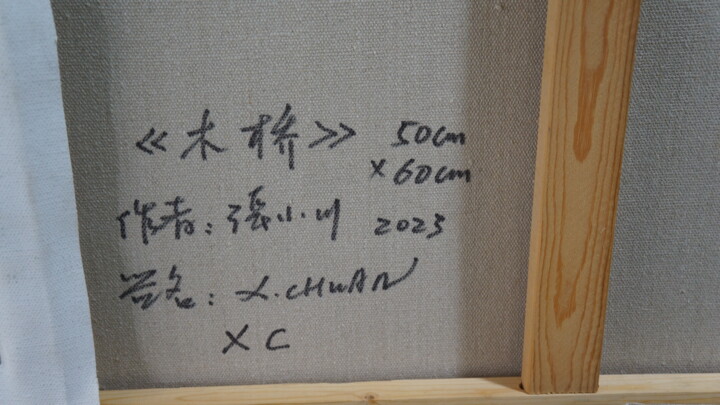 《木桥》 50cm
×60cm
作者：張小川 2023
签名：X.CHUAN
XC